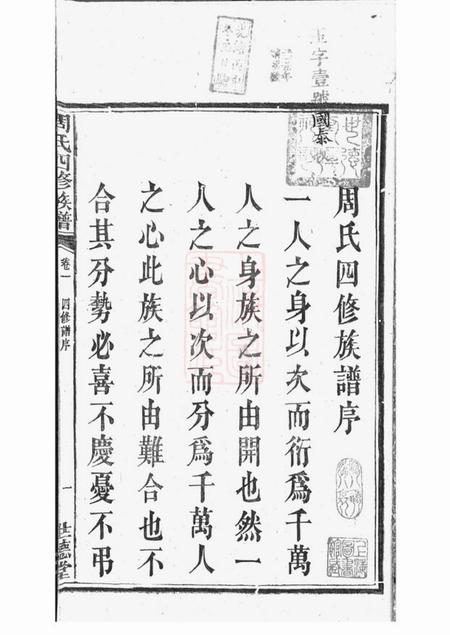 玉字壹號
國泰
周氏四修族譜序
一人之身以次而衍爲千萬
人之身族之所由開也然一
人之心以次而分爲千萬人
之心此族之所由難合也不
合其分勢必喜不慶憂不弔
周氏四修族譜
卷一
四修譜序
一
世德堂